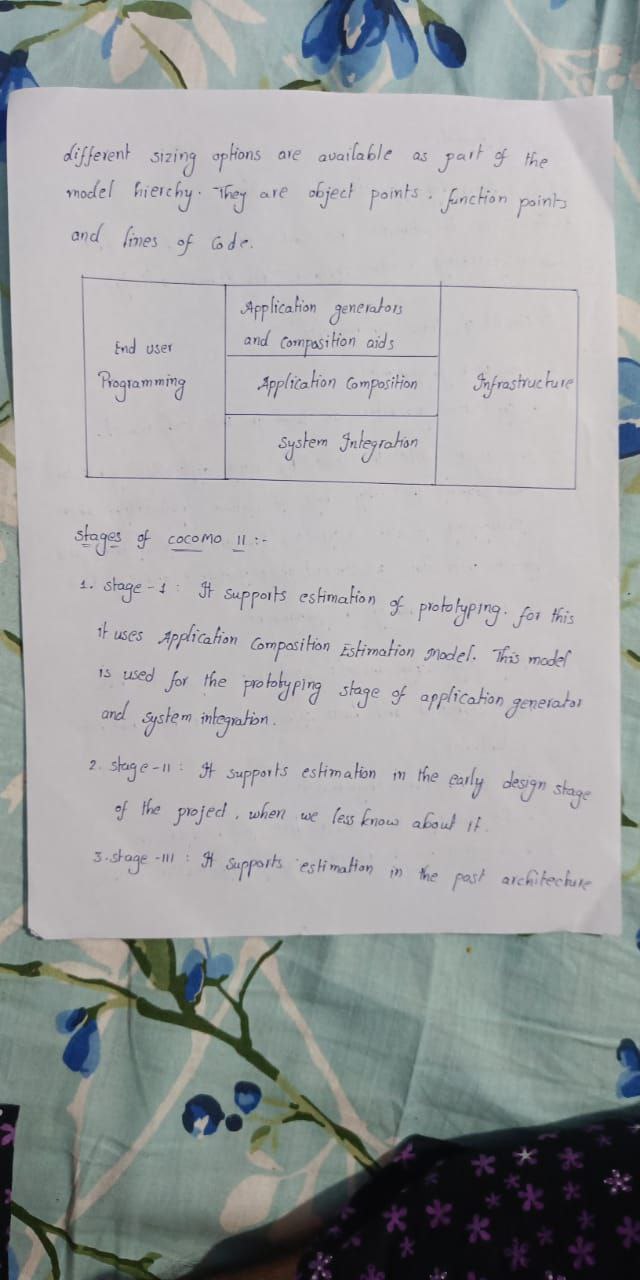 different sizing options are available as part of the
model hierchy. They are object points, function points
and lines of code.
Application generators
and Composition aids
End user
Programming
Application Composition
Infrastructure
System Integration
Stages of COCOMO II :-
1. stage-1 : It supports estimation of prototyping. for this
it uses Application Composition Estimation model. This model
is used for the prototyping stage of application generator
and system integration.
2. stage-II : It supports estimation in the early design stage
of the project, when we less know about it.
3. stage-III : It supports estimation in the post architecture